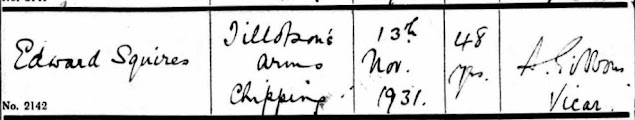 Edward Squires
Tillotson's
Arms
Chipping
13th
Nov.
1931.
48
yrs.
A. Gibbons
Vicar.
No. 2142